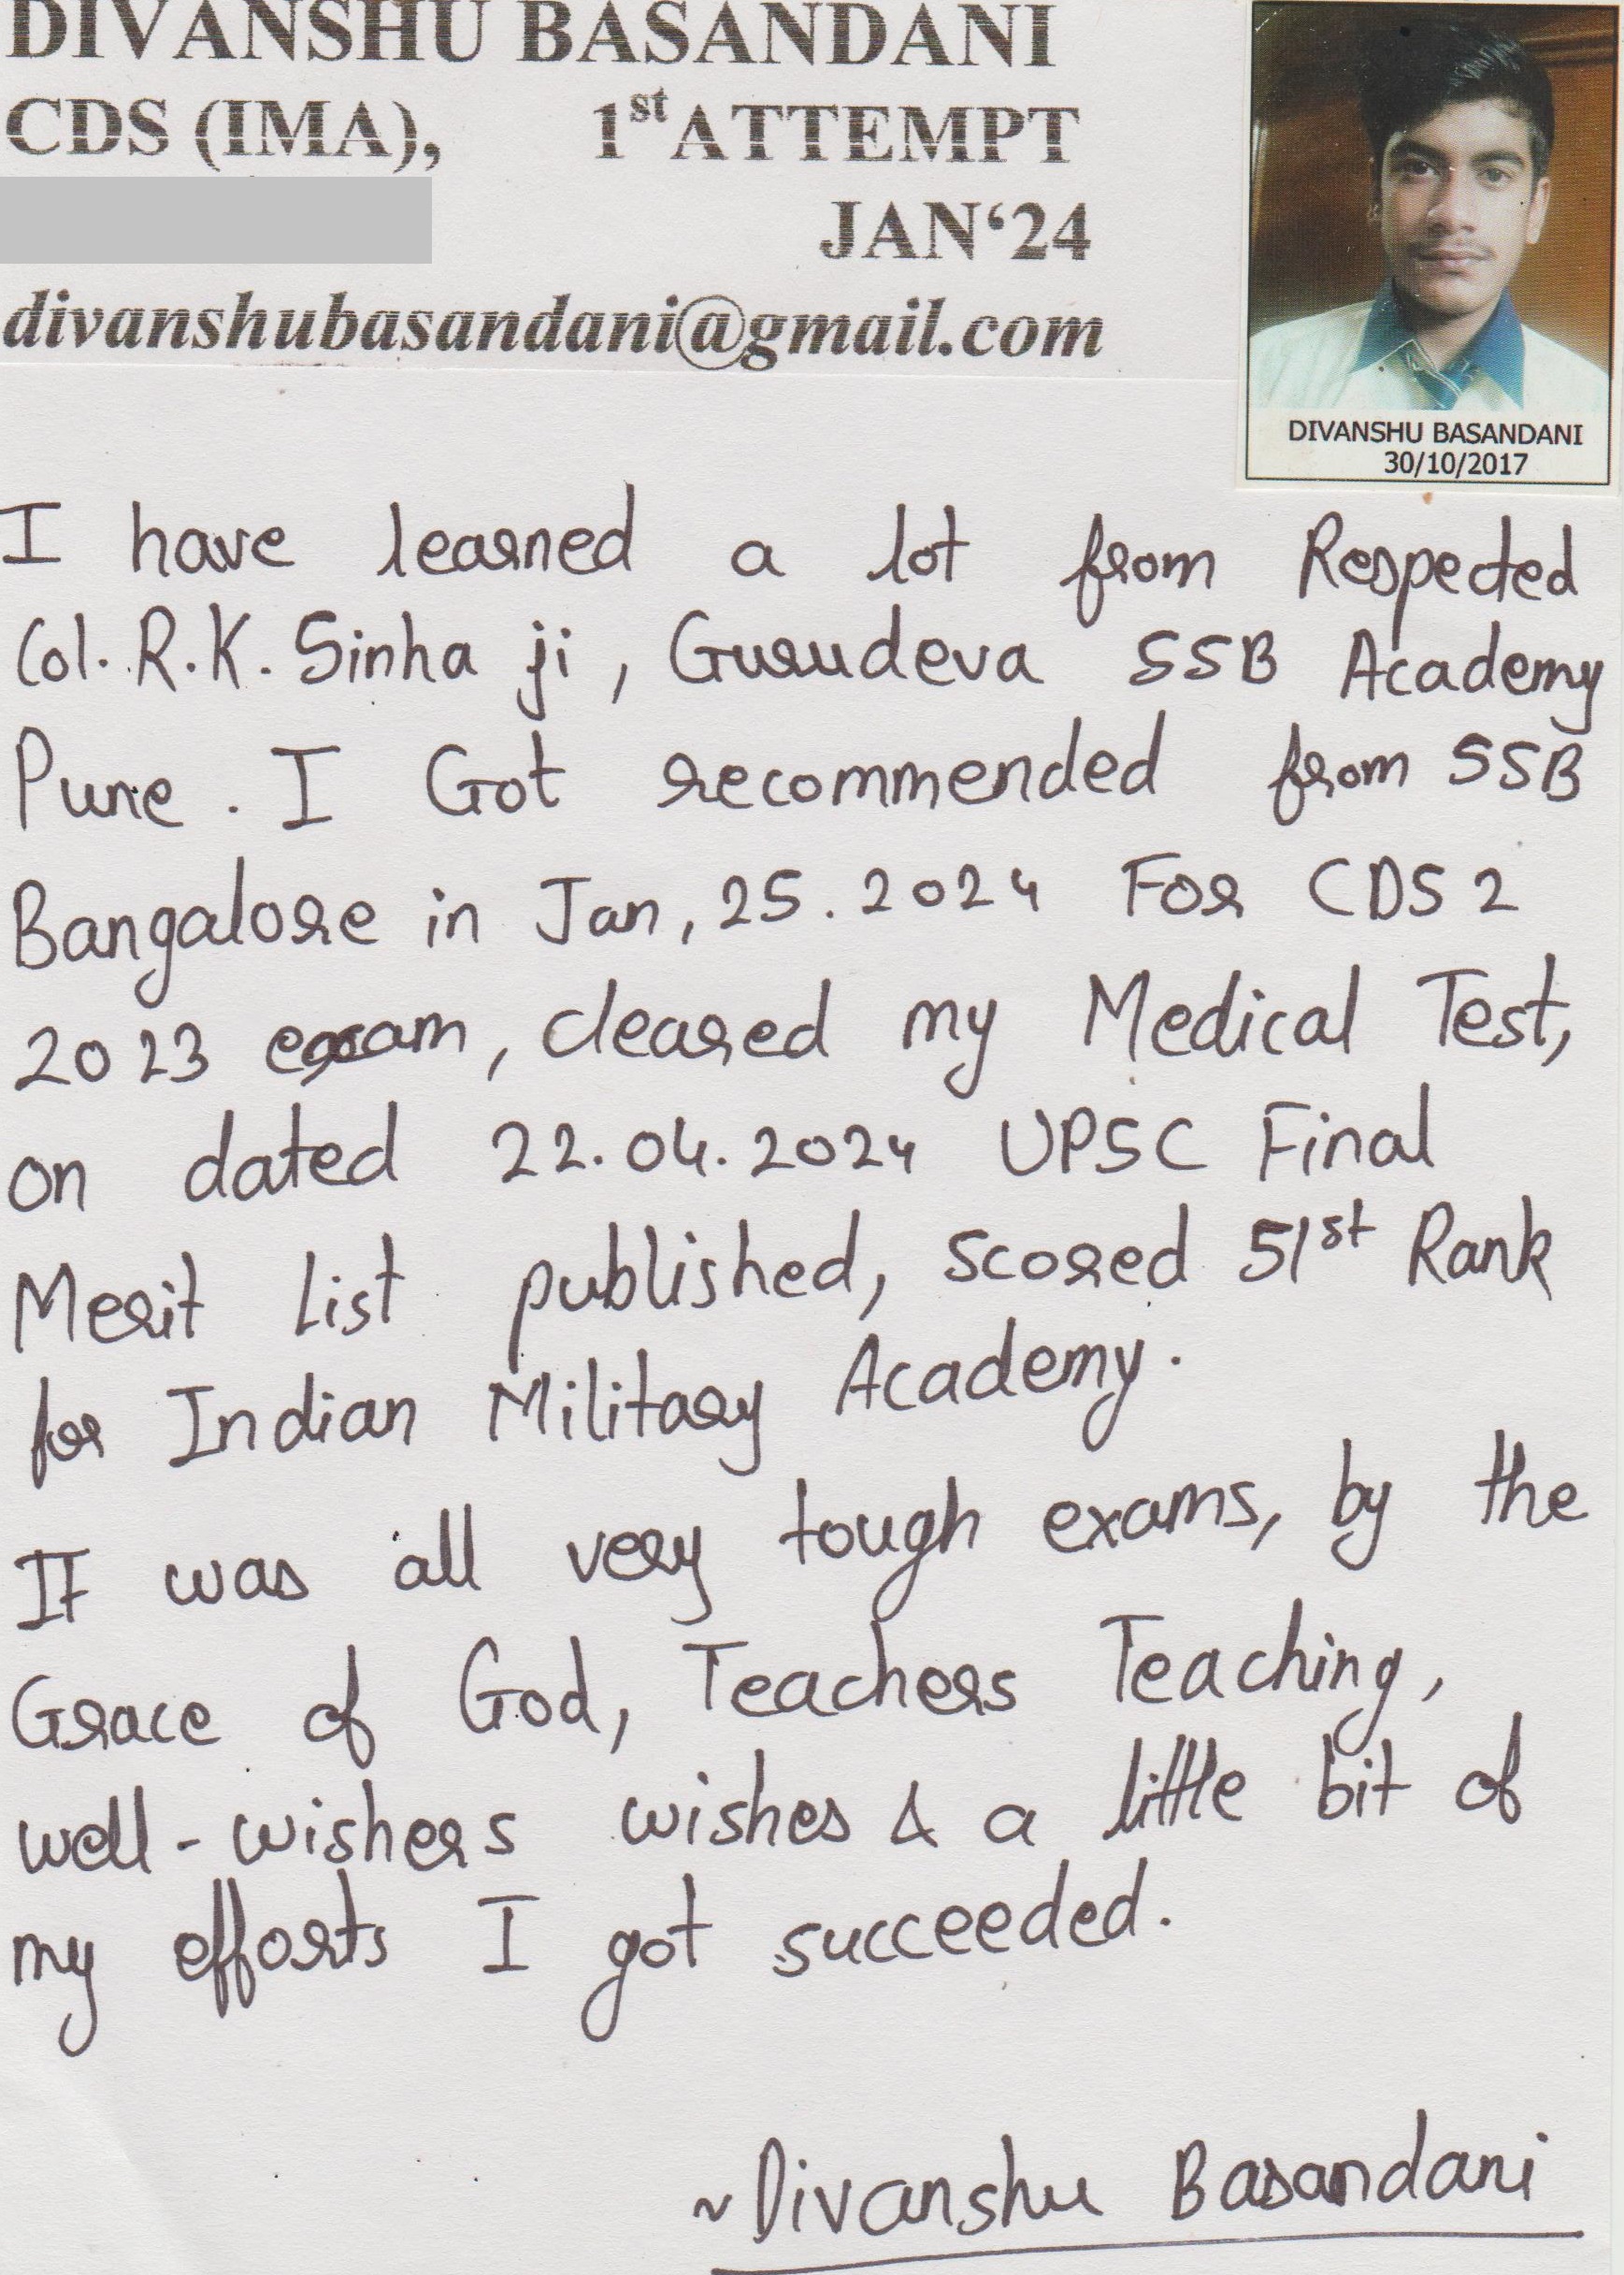 DIVANSHU BASANDANI
CDS (IMA), 1st ATTEMPT
JAN‘24
divanshubasandani@gmail.com
DIVANSHU BASANDANI
30/10/2017
I have learned a lot from Respected
Col. R.K. Sinha ji, Gurudeva SSB Academy
Pune. I Got recommended from SSB
Bangalore in Jan, 25.2024 For CDS 2
2023 exam, cleared my Medical Test,
on dated 22.04.2024 UPSC Final
Merit List published, scored 51st Rank
for Indian Military Academy.
It was all very tough exams, by the
Grace of God, Teachers Teaching,
well-wishers wishes & a little bit of
my efforts I got succeeded.
~Divanshu Basandani